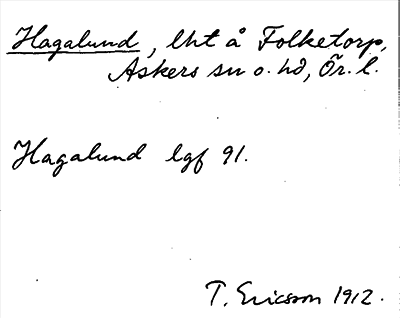 Hagalund, lht å Folketorp,
Askers sn o. hd, Ör. l.
Hagalund lgf 91.
T. Ericsson 1912.